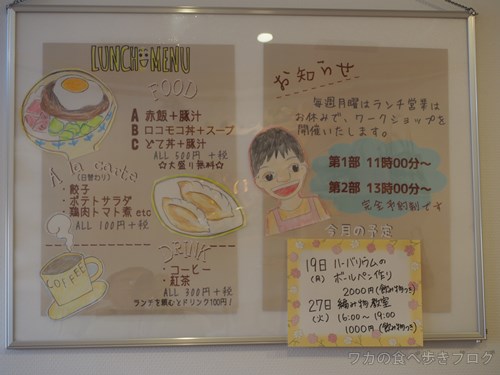 LUNCH MENU
FOOD
A 赤飯+豚汁
B ロコモコ丼+スープ
C とて丼+豚汁
ALL 500円 +税
☆大盛り無料☆
A la carte
(日替わり)
・餃子
・ポテトサラダ
・鶏肉トマト煮 etc
ALL 100円 +税
DRINK
・コーヒー
・紅茶
ALL 300円 +税
ランチを頼むとドリンク100円!
COFFEE
お知らせ
毎週月曜はランチ営業は
お休みで、ワークショップを
開催いたします。
第1部 11時00分~
第2部 13時00分~
完全予約制です
今月の予定
19日 ハーバリウムの
(月) ボールペン作り
2000円(飲み物つき)
27日 編み物教室
(火) 16:00~19:00
1000円(飲み物つき)
ワカの食べ歩きブログ